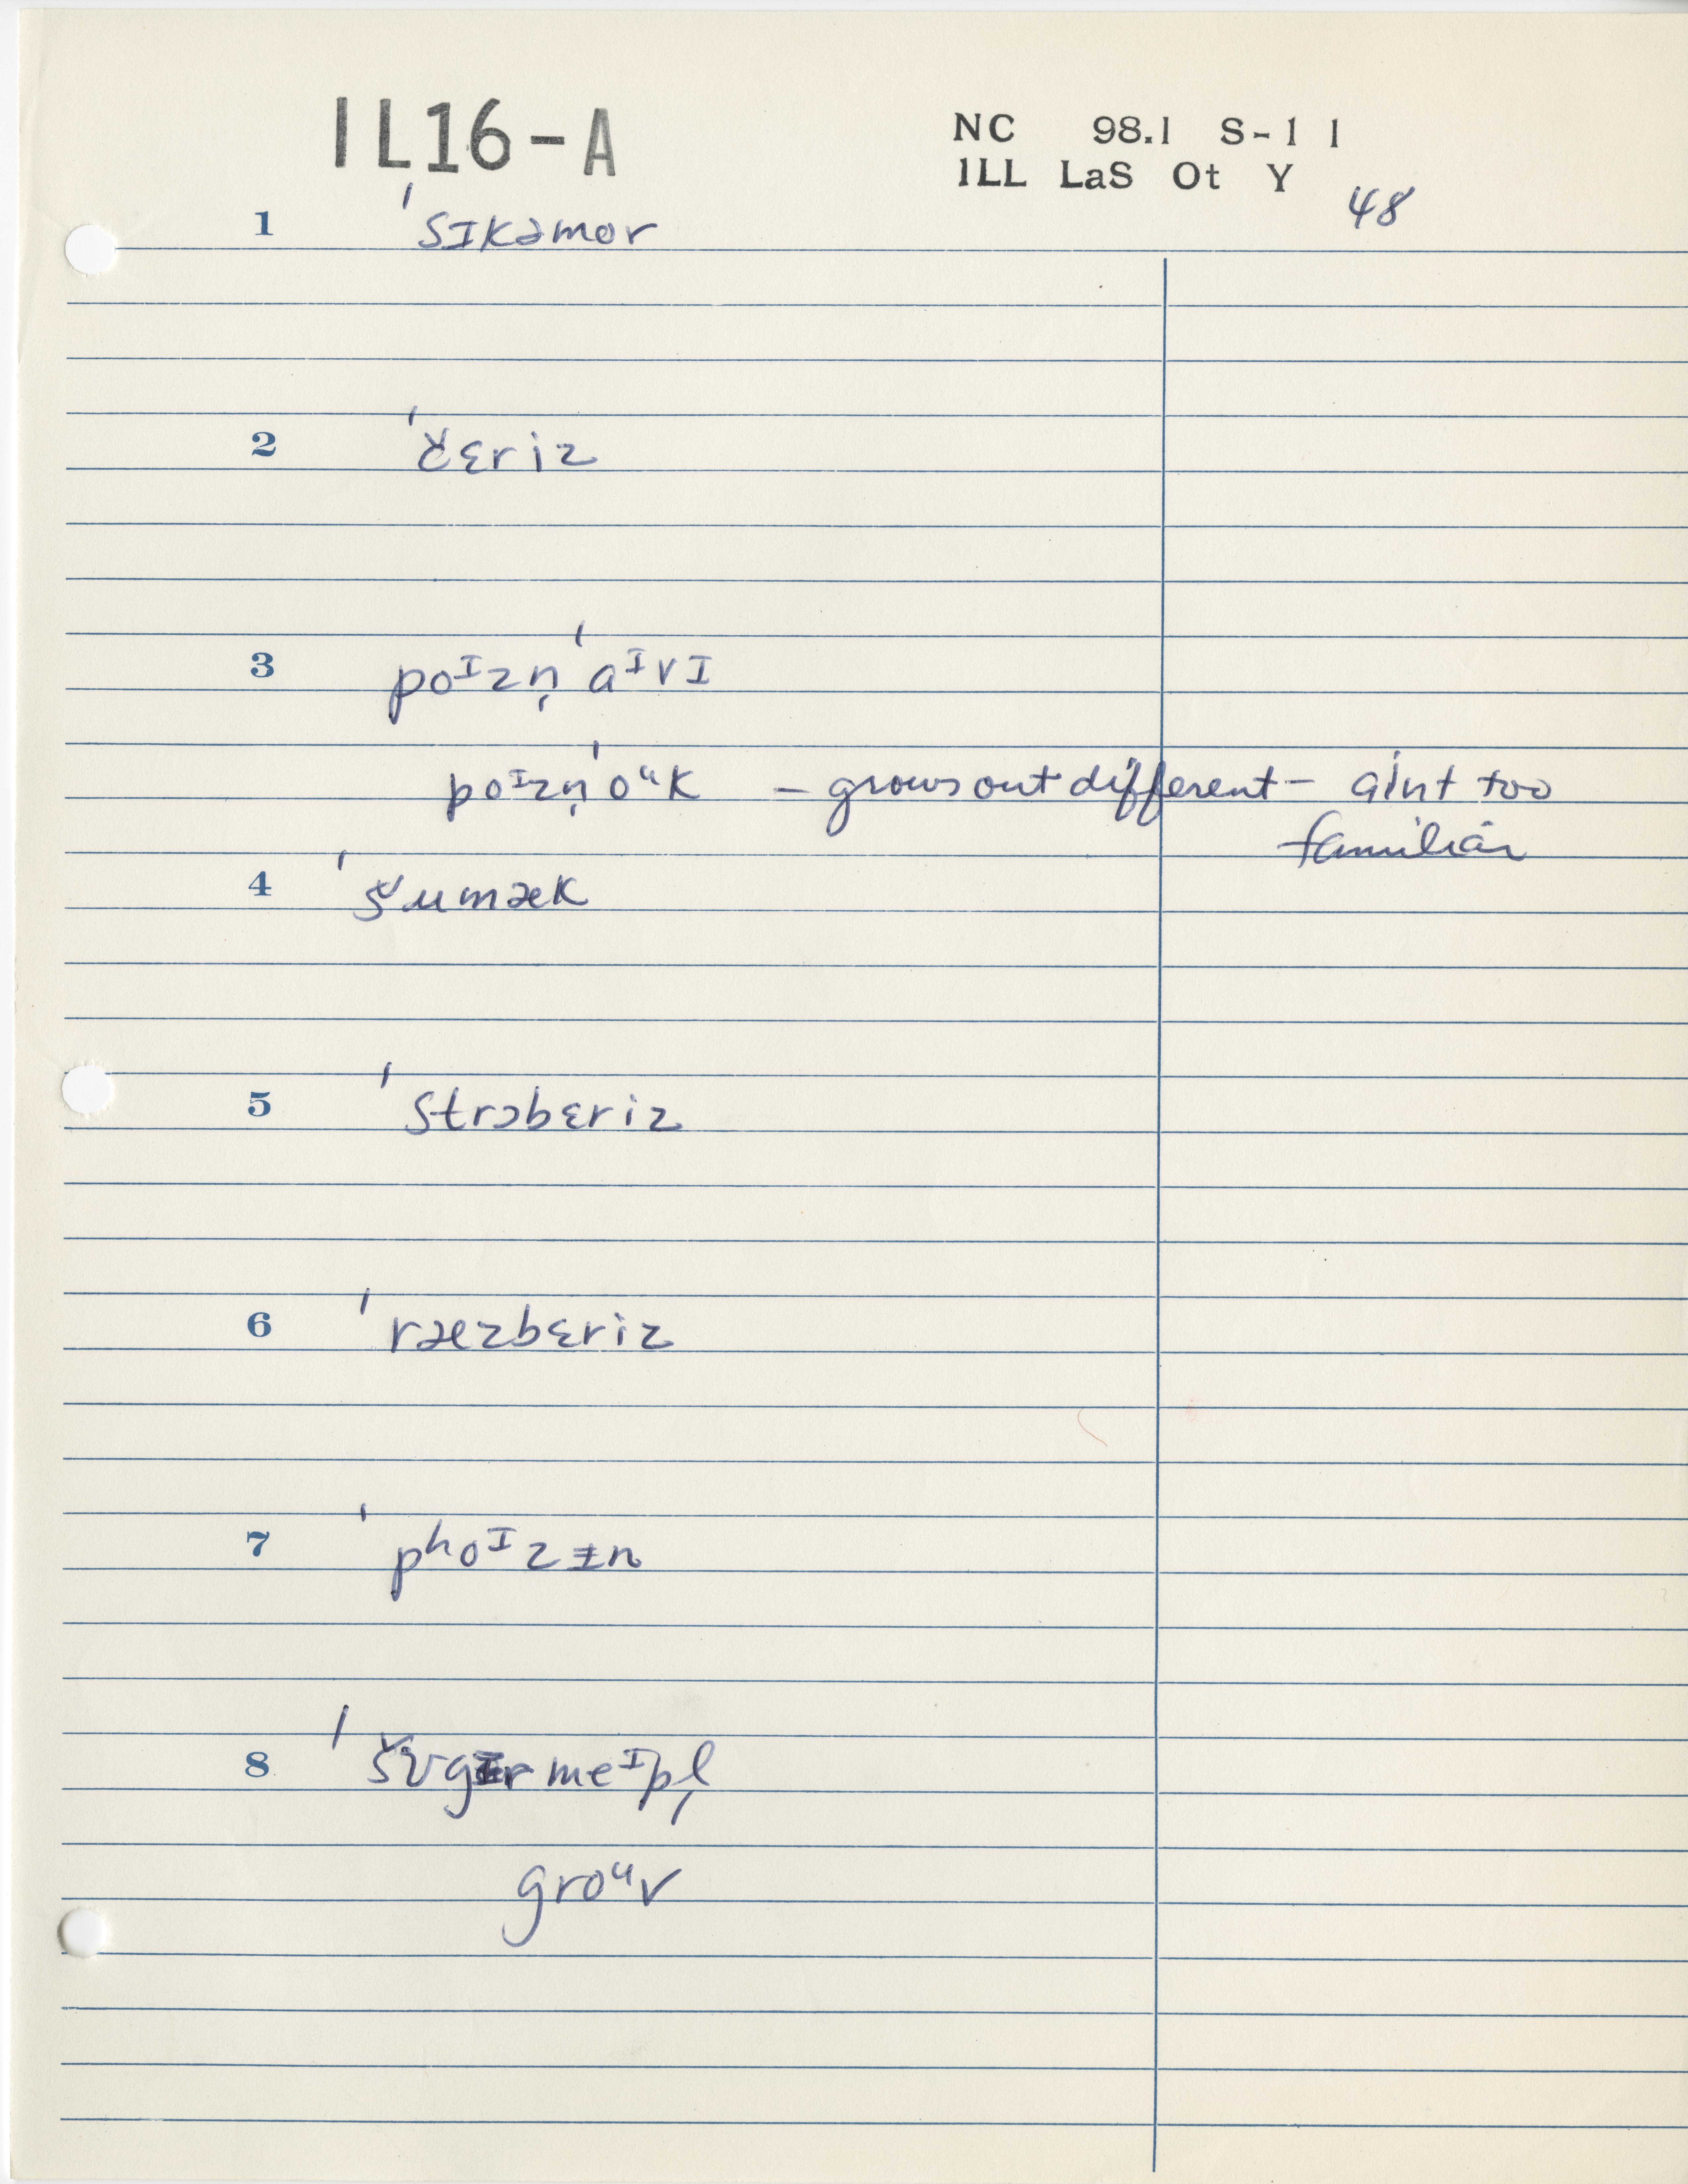 IL16-A
NC 98.1 S-11
ILL LaS Ot Y
48
1 ˈsɪkəmor
2 ˈčɛriz
3 poᶦzn̩ ˈaᶦvɪ
poᶦzn̩ ˈoᵘk – grows out different – aint too
familiar
4 ˈšumæk
5 ˈstrɔbɛriz
6 ˈræzbɛriz
7 ˈpʰoᶦzɪ̵n
8 ˈšʊgər meᶦpl̩
groᵘv